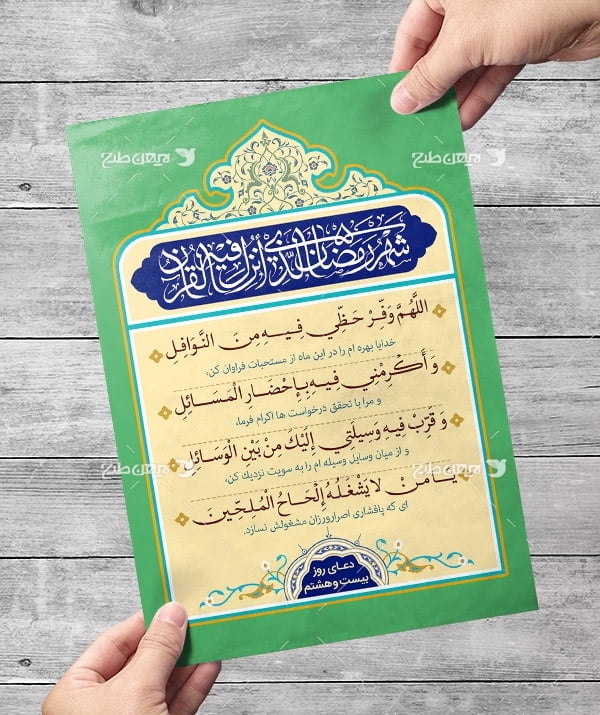 شهر رمضان الذي أنزل فيه القرآن
اللَّهُمَّ وَفِّرْ حَظِّي فِيهِ مِنَ النَّوَافِلِ
خدایا بهره ام را در این ماه از مستحبات فراوان کن،
وَ أَكْرِمْنِي فِيهِ بِإِحْضَارِ الْمَسَائِلِ
و مرا با تحقق درخواست ها اکرام فرما،
وَ قَرِّبْ فِيهِ وَسِيلَتِي إِلَيْكَ مِنْ بَيْنِ الْوَسَائِلِ
و از میان وسایل وسیله ام را به سویت نزدیک کن،
يَا مَنْ لا يَشْغَلُهُ إِلْحَاحُ الْمُلِحِّينَ
ای که پافشاری اصرارورزان مشغولش نسازد.
دعای روز
بیست و هشتم
میهن طرح
میهن طرح
میهن طرح
میهن طرح